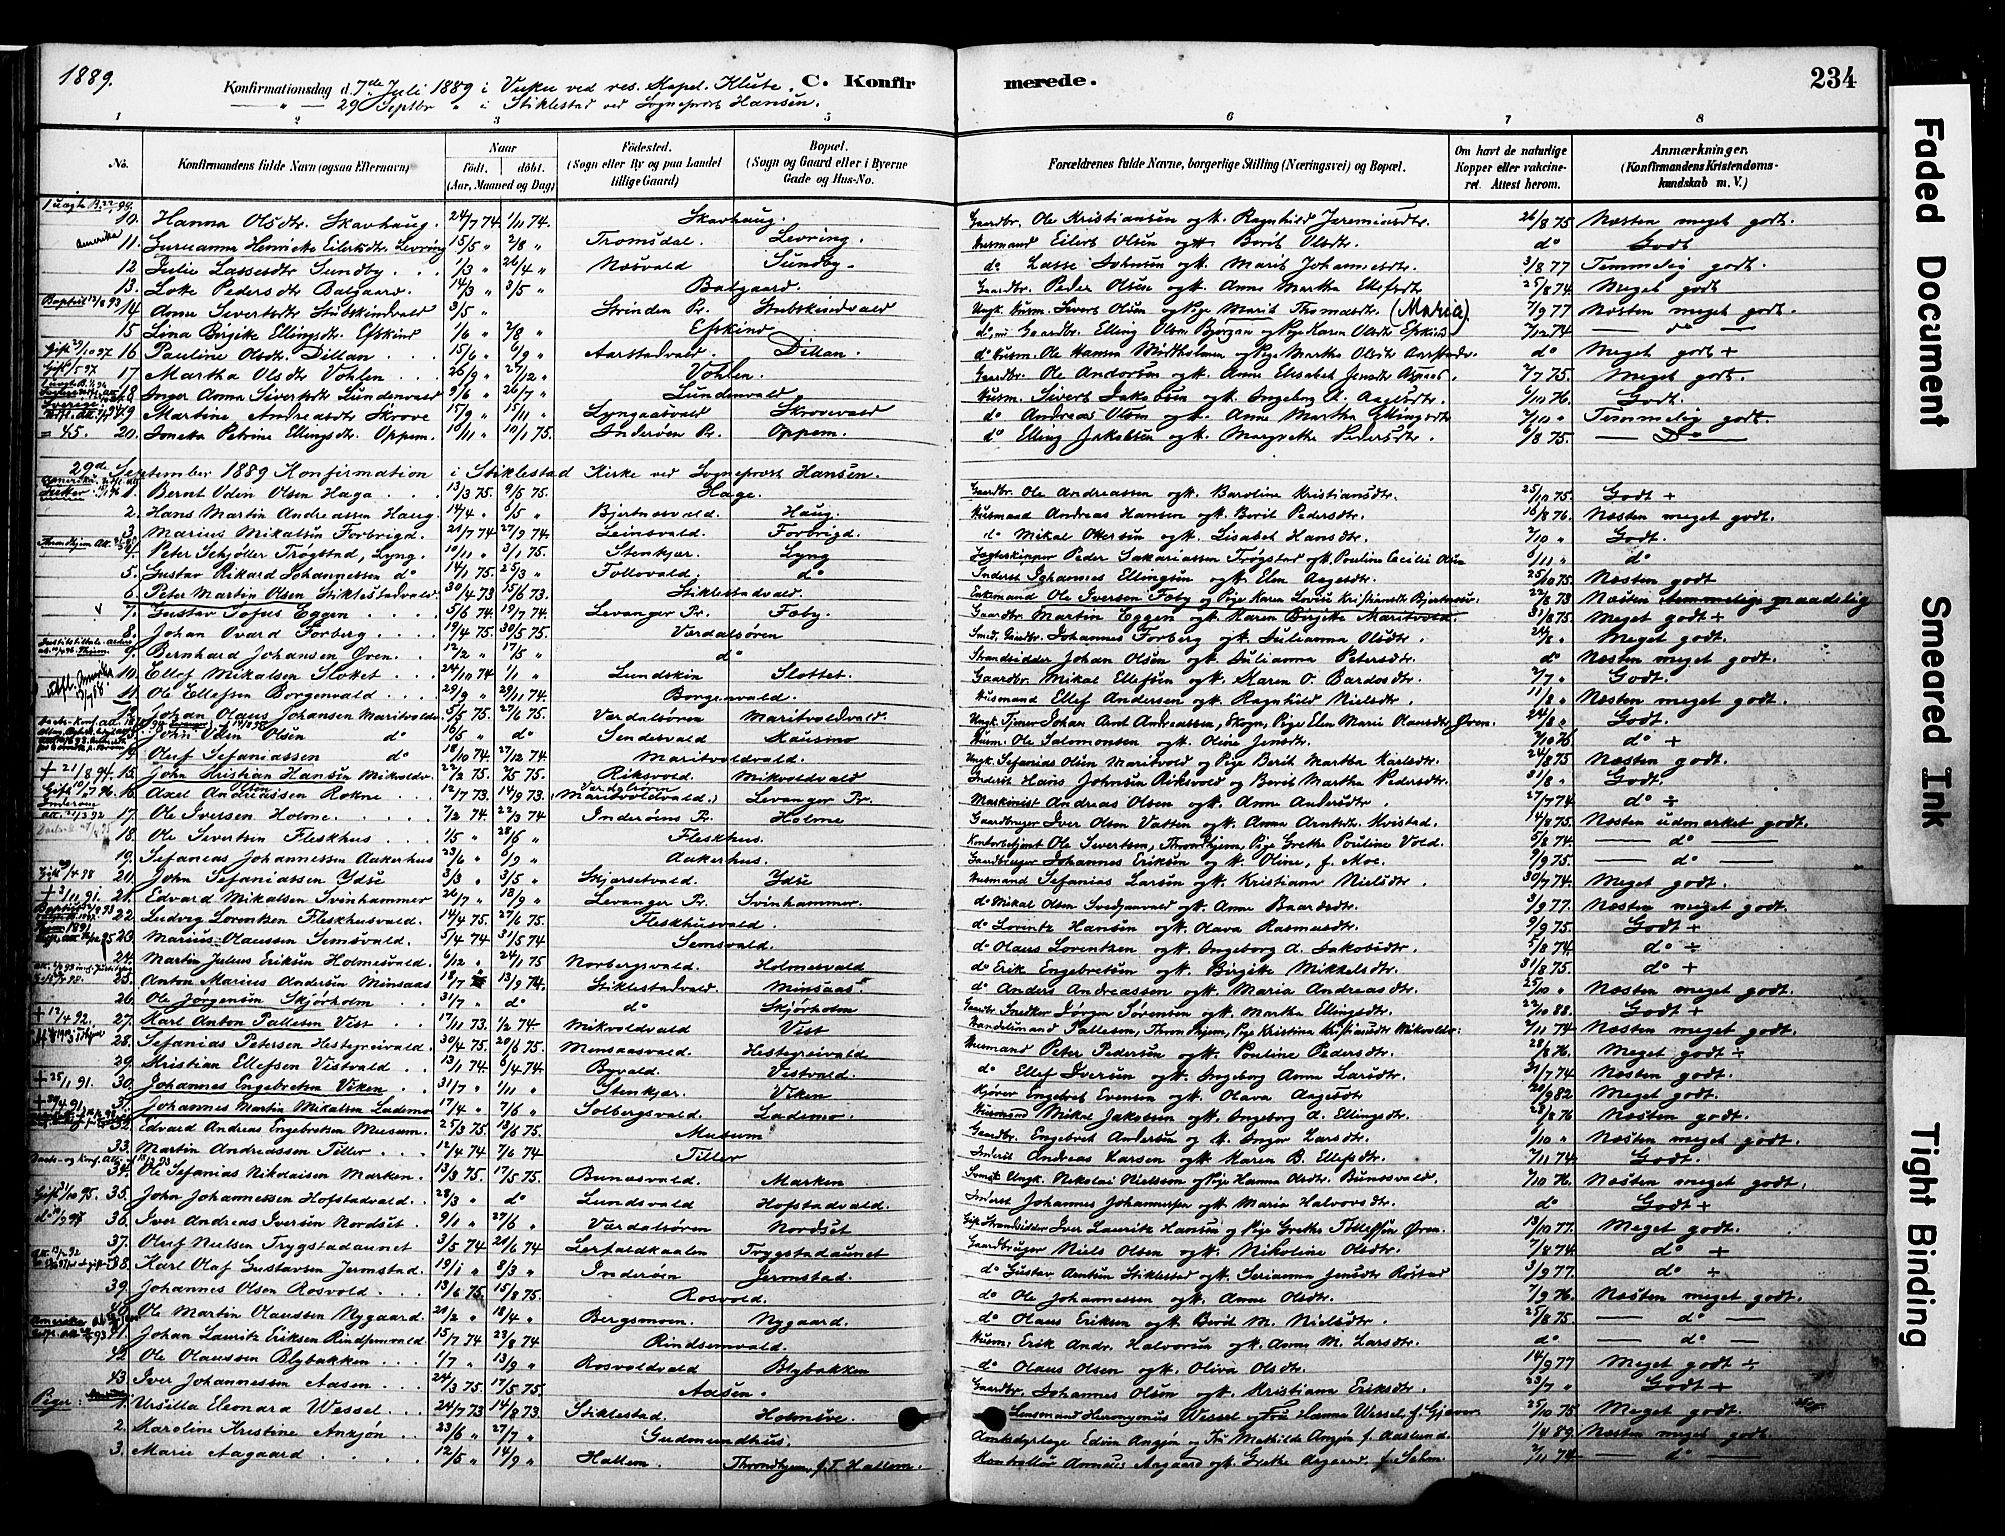 1889.
Konfirmationsdag d. 7de Juli 1889 i Vuku ved res. Kapel. Klüte.
— " — 29 Septbr " i Stiklestad ved Sogneprost Hansen.
C. Konfirmerede.
234
1 2 3 4 5 6 7 8
No.
Konfirmandens fulde Navn (ogsaa Efternavn)
Naar født, døbt. (Aar, Maaned og Dag)
Fødested. (Sogn eller By og paa Landet tillige Gaard)
Bopæl. (Sogn og Gaard eller i Byerne Gade og Hus-No.
Forældrenes fulde Navne, borgerlige Stilling (Næringsvei) og Bopæl.
Om havt de naturlige Kopper eller vakcineret. Attest herom.
Anmærkninger. (Konfirmandens Kristendomskundskab m. V.)
10. Hanna Olsdtr. Skavhaug. 24/7 74. 1/11 74. Skavhaug. Gaardbr. Ole Kristiansen og k. Ragnhild Jeremiasdtr. 26/8 75 Næsten meget godt.
Amerika 11. Guruanna Henricke Eilertsdtr Levring 15/5 " 2/8 " Tromsdal. Levring. Husmand Eilert Olsen og k. Berit Olsdtr. do Godt
12 Julie Lassesdtr Sundby. 1/3 " 26/4 " Næsvald Sundby. do Lasse Johnsen og k. Marit Johannesdtr. 3/8 77 Temmelig godt.
13. Lote Pedersdtr Balgaard. 14/3 " 3/5 " Balgaard. Gaardbr. Peder Olsen og k. Anne Martha Ellefsdtr. 25/8 74 Meget godt
14 Anna Sivertsdtr Stubskindvald 3/5 " Strinden Pr. Stubskindvald Ungk. Husm. Sivert Olsen og Pige Marit Thomasdtr. (Maria) 7/9 77 Næsten meget godt.
15 Lina Birgite Ellingsdtr. Efskind 1/6 " 2/8 " Efskind Gaardbr. Elling Olsen Bjorgan og Pige Karen Olsdtr Efskind 7/12 74 — do —
Gift 29/10 97 16 Pauline Olsdtr. Dillan 15/6 " 6/9 " Aarstadvald. Dillan. do Husm. Ole Hansen Midtholmen og Pige Martha Olsdtr Aarstadv. do Meget godt +
17 Martha Olsdtr Vohlen 26/9 " 27/12 " Vohlen. Gaardbr. Ole Andersen og k. Anne Elisabet Jensdtr Aspaas. 2/7 75. Meget godt.
18. Inger Anna Sivertsdtr Lundenvald 9/6 " 26/7 " Lundenvald Husm. Sivert Jakobsen og k. Ingeborg A. Aagesdtr. 6/10 76 Godt.
19. Martine Andreasdtr Skrove 15/9 " 15/11 " Lyngaasvald Skrovevald do Andreas Olsen og k. Anne Martha Ellingsdtr 7/10 " Temmelig godt.
= 45. 20. Joneta Petrine Ellingsdtr. Oppem. 10/11 " 10/1 75. Inderøen Pr. Oppem. do Elling Jakobsen og k. Margrethe Pedersdtr. 6/8 75. — Do —
29de September 1889 Konfirmation i Stiklestad Kirke ved Sogneprost Hansen.
1. Bernt Odin Olsen Haga 13/3 75. 9/5 75. Hage. Gaardbr. Ole Andreassen og k. Baroline Kristiansdtr. 25/10 75. Godt +
2. Hans Martin Andreassen Haug. 14/4 " 6/5 " Bjertnesvald. Haug. Husmand Andreas Hansen og k. Berit Pedersdtr. 16/8 76. Næsten meget godt.
3. Marius Mikalsen Forbrigd. 21/7 74 27/9 74. Leinsvald. Forbrigd. do Mikal Ottersen og k. Lisabet Hansdtr. 7/10 " Godt.
4. Peter Schjøller Trøgstad, Lyng. 10/11 " 3/1 75. Stenkjær. Lyng Jagteskipper Peder Sakariassen Trøgstad og k. Pouline Cecilie Olsen 6/11 " do
5. Gustav Rikard Johannessen do 14/1 75. 25/3 " Follovald. do Inderst Johannes Ellingsen og k. Elen Aagesdtr. 25/10 75. Næsten godt
6. Peter Martin Olsen Stiklestadvald. 30/4 73 15/6 73. Stiklestadvald. Enkemand Ole Iversen Fæby og Pige Karen Lovise Kristiansdtr Bjertnes. 22/8 73 Næsten temmelig maadelig
7. Gustav Tofus Eggen 5/6 74 19/7 74. Levanger Pr. Fæby. Gaardbr. Martin Eggen og k. Karen Birgitte Maritvold. 31/8 75. Meget godt +
8. Johan Ovard Forberg 19/4 75. 30/5 75. Verdalsøren Smed, Johannes Forberg og k. Julianna Olsdtr. 24/8 " Meget godt.
9. Bernhard Johansen Øren. 12/2 " 17/5 " do Strandsidder Johan Olsen og k. Julianna Petersdtr. do Næsten meget godt.
10. Ellef Mikalsen Slotet 24/10 74 1/1 " Lundskin Slottet. Gaardbr. Mikal Ellefsen og k. Karen O. Bardosdtr. 2/7 " Godt.
11. Ole Ellefsen Borgenvald. 29/9 " 29/11 74. Borgenvald. Husmand Ellef Andersen og k. Ragnhild Nielsdtr. 11/8 " Næsten meget godt.
12. Johan Olaus Johansen Maritvoldv. 5/5 75. 27/6 75. Verdalsøren Maritvoldvald. Ungk. Tjener Johan Arnt Andreassen, Skogn, Pige Elen Marie Olausdtr Øren. 24/8 " Godt.
John Viken Olsen do 16/5 " do Sendesvald Mausmo Husm. Ole Salomonsen og k. Oline Jensdtr. 7/10 76 do +
14. Oluf Sefaniassen do 18/10 74 27/12 74 Maritvoldvald. Ungk. Sefanias Olsen Maritvold og Pige Berit Martha Karlsdtr. 24/8 75 Næsten godt.
+ 21/8 94. 15. John Kristian Hansen Mikvoldv. 22/2 75. 7/5 75. Riksvold. Mikvoldvald Inderst Hans Johnsen Riksvold og Berit Martha Pedersdtr. 31/8 " Godt.
Gift 10/7 96. 16. Axel Andreassen Rokne. 12/7 73. 14/9 73. Verdalsøren (Maritvoldvald.) Levanger Pr. Maskinist Andreas Olsen og k. Anne Andersdtr. 27/7 74 do ÷
Inderøen att. 21/3 92 17. Ole Iversen Holme. 7/2 74. 22/3 74 Inderøens Pr. Holme Gaardbruger Iver Olsen Vatten og k. Anna Arntsdtr. Kvistad. 14/8 75. Næsten udmerket godt.
18. Ole Sivertsen Fleskhus 1/5 " 28/6 " Fleskhus. Kontorbetjent Ole Sivertsen, Throndhjem, Pige Grethe Pouline Vold. 5/8 74 — do —
19. Sefanias Johannessen Aakerhus 23/6 " 6/9 " Aakerhus. Gaardbruger Johannes Eriksen og k. Oline, f. Moe. 9/9 75. — do —
Gift 29/4 98 20. John Sefaniassen Ydse 3/3 " 3/5 " Skjørsetvald. Ydse Husmand Sefanias Larsen og k. Kristiana Nielsdtr. 30/7 74. Meget godt.
+ 3/11 91. 21. Edvard Mikalsen Svinhammer 26/7 " 13/9 " Levanger Pr. Svinhammer. do Mikal Olsen Svedjanvald og k. Anne Baardsdtr. 3/9 77. Næsten meget godt.
22. Ludvig Lorentzen Fleskhusvald. 14/4 75. 27/6 75. Fleskhusvald. do Lorentz Hansen og k. Olava Rasmusdtr. 9/9 75. Godt +
23. Marius Olaussen Semsvald. 5/4 74 31/5 74 Semsvald. do Olaus Lorentzen og k. Ingeborg A. Jakobsdtr. 5/8 74. do ÷
24. Martin Julius Eriksen Holmesvald. 6/12 " 24/1 75 Norbergsvald. Holmesvald do Erik Engebretsen og k. Birgite Mikkelsdtr. 31/8 75. do +
25. Anton Marius Andersen Minsaas 18/7 74 13/9 74. Stiklestadvald. Minsaas do Anders Andreassen og k. Maria Andreasdtr. 25/10 " Næsten meget godt.
26. Ole Jørgensen Skjørholm. 31/7 " do do Skjørholm Gaardbr. Snedker Jørgen Sørensen og k. Martha Ellingsdtr. 22/10 88. Godt +
+ 12/4 92. 27. Karl Anton Pallesen Vist 17/11 73. 1/2 74. Mikvoldvald Vist Handelsmand Pallesen, Throndhjem, Pige Kristina Kristiansdtr Mikvoldv. 7/11 74 Næsten meget godt.
28. Sefanias Petersen Hestegreivald. 30/4 75. 20/6 75. Minsaasvald. Hestegreivald Husmand Peter Pedersen og k. Pouline Pedersdtr. 28/8 76. Meget godt ÷
29. Kristian Ellefsen Vistvald. 13/1 74 6/4 74 Byvald. Vistvald. do Ellef Iversen og k. Ingeborg Anna Larsdtr. 31/7 74 Næsten godt.
+ 25/11 91. 30. Johannes Engebretsen Viken 31/7 " 1/11 " Stenkjær. Viken Kjører Engebret Evensen og k. Olava Aagesdtr 20/9 82 Meget godt.
+ 29/4 91 31. Johannes Martin Mikalsen Lademo 17/4 " 7/6 " Solbergsvald. Lademo. Husmand Mikal Jakobsen og k. Ingeborg A. Ellingsdtr. 28/8 76 Næsten godt.
32. Edvard Andreas Engebretsen Musum. 25/3 75. 13/6 75. Musum Gaardbr. Engebret Andersen og k. Inger Larsdtr. 6/10 " Næsten meget godt.
33. Martin Andreassen Tiller 12/4 74 7/6 74 Tiller Inderst Andreas Larsen og k. Karen B. Ellefsdtr. 7/11 74 Godt.
34. Ole Sefanias Nikolaisen Marken. 13/3 75. 17/5 75. Bunesvald. Marken Ungk. Nikolai Nielssen og Pige Hanna Olsdtr. Bunesvald. 7/10 76. Næsten meget godt.
35. John Johannessen Hofstadvald. 28/3 " do Lundsvald Hofstadvald. Inderst Johannes Johannessen og k. Maria Halvorsdtr. do Godt +
36. Iver Andreas Iversen Nordset. 9/1 " 27/6 " Verdalsøren Nordset Gift Strandsidder Iver Lauritz Hansen og Pige Grethe Tollefsen Øren. 13/10 77. Meget godt.
37. Oluf Nielsen Trygstadaunet 3/5 74 20/6 74. Lerfaldkaalen Trygstadaunet Gaardbruger Niels Olsen og k. Nikoline Olsdtr. 7/8 74. do +
38. Karl Olaf Gustavsen Jermstad. 19/1 " 8/3 " Inderøen Jermstad. do Gustav Arntsen Stiklestad og k. Serianna Jensdtr Rostad 3/9 77. do ÷
39. Johannes Olsen Rosvold. 13/6 75. 15/8 75. Rosvold. do Ole Johannessen og k. Anne Olsdtr. 7/9 76. Næsten meget godt.
40. Ole Martin Olaussen Nygaard. 21/2 " 18/4 " Bergsmoen. Nygaard. do Olaus Eriksen og k. Berit M. Nielsdtr. 25/8 75 — do —
41. Johan Lauritz Eriksen Rindsemvald 15/7 74 23/8 74 Rindsemvald. Husm. Erik Andr. Halvorsen og k. Anna M. Larsdtr. do — do —
42. Ole Olaussen Blybakken 1/7 " 13/9 " Rosvoldvald Blybakken do Olaus Olsen og k. Oliva Olsdtr. 14/9 77 Meget godt ÷
43. Iver Johannessen Aasen 24/3 75. 17/5 75. Aasen. Gaardbr. Johannes Olsen og k. Kristiana Eriksdtr. 23/7 " Godt +
Piger: 1. Ursilla Eleonora Wessel. 24/7 73 14/8 73. Stiklestad. Holmsve. Lensmand Hieronymus Wessel og Fru Hanna Wessel f. Gjæver 25/10 75 Meget godt.
2. Karoline Kristine Anzjøn. 23/6 " 27/7 " Gudmundhus. Amtsdyrlæge Edvin Anzjøn og Fru Mathilde Anzjøn f. Aaslund. 1/4 89. Næsten meget godt
3. Marie Aagaard 12/5 " 14/9 " Hallem. Throndhjem, f. T. Hallem. Kontrollør Annæus Aagaard og k. Grethe Aagaard f. Selm. 2/11 74 — do —
Faded Document
Smeared Ink
Tight Binding